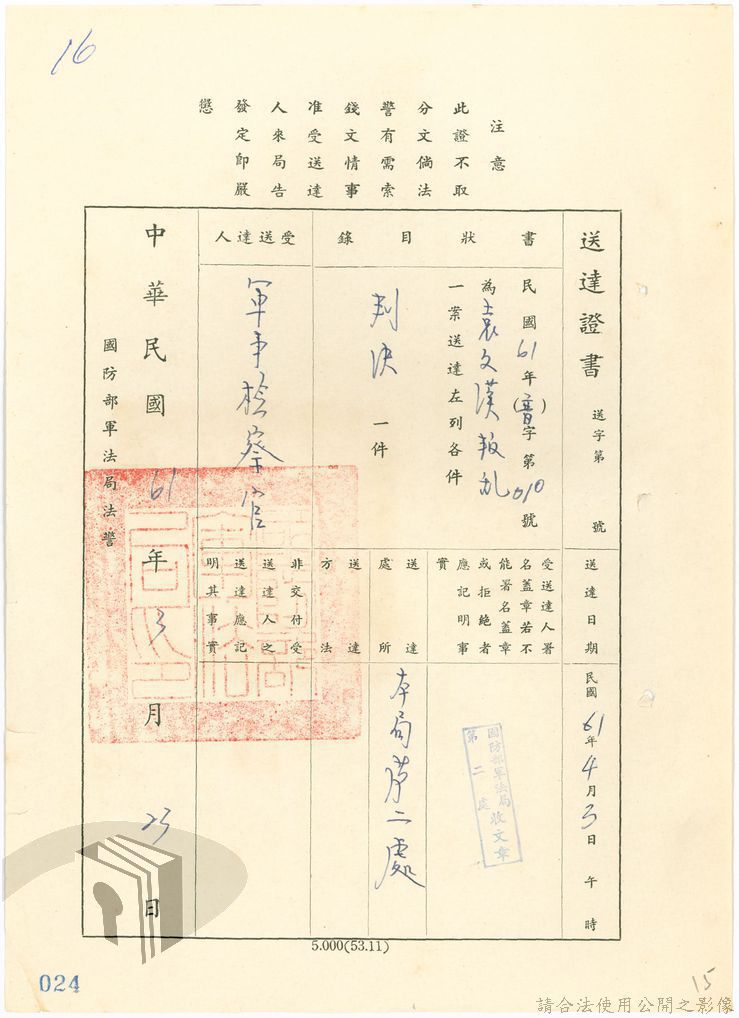 16
注意
此證不取
分文倘法
警有需索
錢文情事
准受送達
人來局告
發定即嚴
懲
送達證書
送字第 號
書狀目錄
民國61年(普)字第010號
為袁文漢叛乱
一案送達左列各件
判決 一件
受送達人
軍事檢察官
送達日期
民國61年4月3日午時
受送達人署
名蓋章若不
能署名蓋章
或拒絕者
應記明事
實
國防部軍法局
第二處收文章
送達處所
本局第二處
送達方法
非交付受
送達人之
送達應記
明其事實
中華民國61年3月23日
國防部軍法局法警
5.000(53.11)
024
15
請合法使用公開之影像